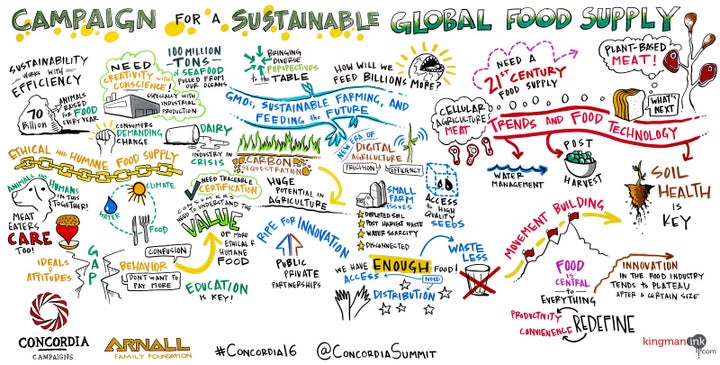 CAMPAIGN FOR A SUSTAINABLE GLOBAL FOOD SUPPLY
SUSTAINABILITY
WORKS WITH
EFFICIENCY
70
Billion
ANIMALS
RAISED
FOR FOOD
EVERY YEAR
NEED
CREATIVITY WITH
CONSCIENCE!
ESPECIALLY WITH
INDUSTRIAL
PRODUCTION
100 MILLION
TONS
OF SEAFOOD
PULLED FROM
OUR OCEANS
BRINGING
DIVERSE
PERSPECTIVES
to the TABLE
HOW WILL WE
FEED BILLIONS MORE?
NEED A
21ST CENTURY
FOOD SUPPLY
PLANT-BASED
MEAT!
WHAT'S
NEXT
CONSUMERS
DEMANDING
CHANGE
DAIRY
INDUSTRY IN
CRISIS
GMOs, SUSTAINABLE FARMING, AND
FEEDING the FUTURE
CELLULAR
AGRICULTURE
MEAT
TRENDS AND FOOD TECHNOLOGY
ETHICAL AND HUMANE FOOD SUPPLY
CARBON
SEQUESTRATION
NEW ERA OF
DIGITAL
AGRICULTURE
PRECISION
EFFICIENCY
WATER
MANAGEMENT
POST
HARVEST
SOIL
HEALTH
IS
KEY
ANIMALS AND
HUMANS
IN THIS
TOGETHER!
MEAT
EATERS
CARE
TOO!
CLIMATE
WATER
FOOD
NEED TRACEABLE
CERTIFICATION
CONSUMERS
NEED TO
UNDERSTAND THE
VALUE
OF MORE
ETHICAL &
HUMANE
FOOD
HUGE
POTENTIAL IN
AGRICULTURE
SMALL
FARM
ISSUES
DEPLETED SOIL
POST HARVEST WASTE
WATER SCARCITY
DISCONNECTED
ACCESS
to HIGH
QUALITY
SEEDS
IDEALS &
ATTITUDES
GAP
CONFUSION
BEHAVIOR
DON'T WANT TO
PAY MORE
EDUCATION
IS KEY!
RIPE FOR INNOVATION
PUBLIC
PRIVATE
PARTNERSHIPS
WE HAVE ENOUGH FOOD!
ACCESS
NEED
DISTRIBUTION
WASTE
LESS
MOVEMENT BUILDING
FOOD
IS
CENTRAL
TO
EVERYTHING
PRODUCTIVITY
CONVENIENCE
REDEFINE
INNOVATION
IN THE FOOD INDUSTRY
TENDS TO PLATEAU
AFTER A CERTAIN SIZE
CONCORDIA
CAMPAIGNS
ARNALL
FAMILY FOUNDATION
#CONCORDIA16
@CONCORDIASUMMIT
kingmanink
.com